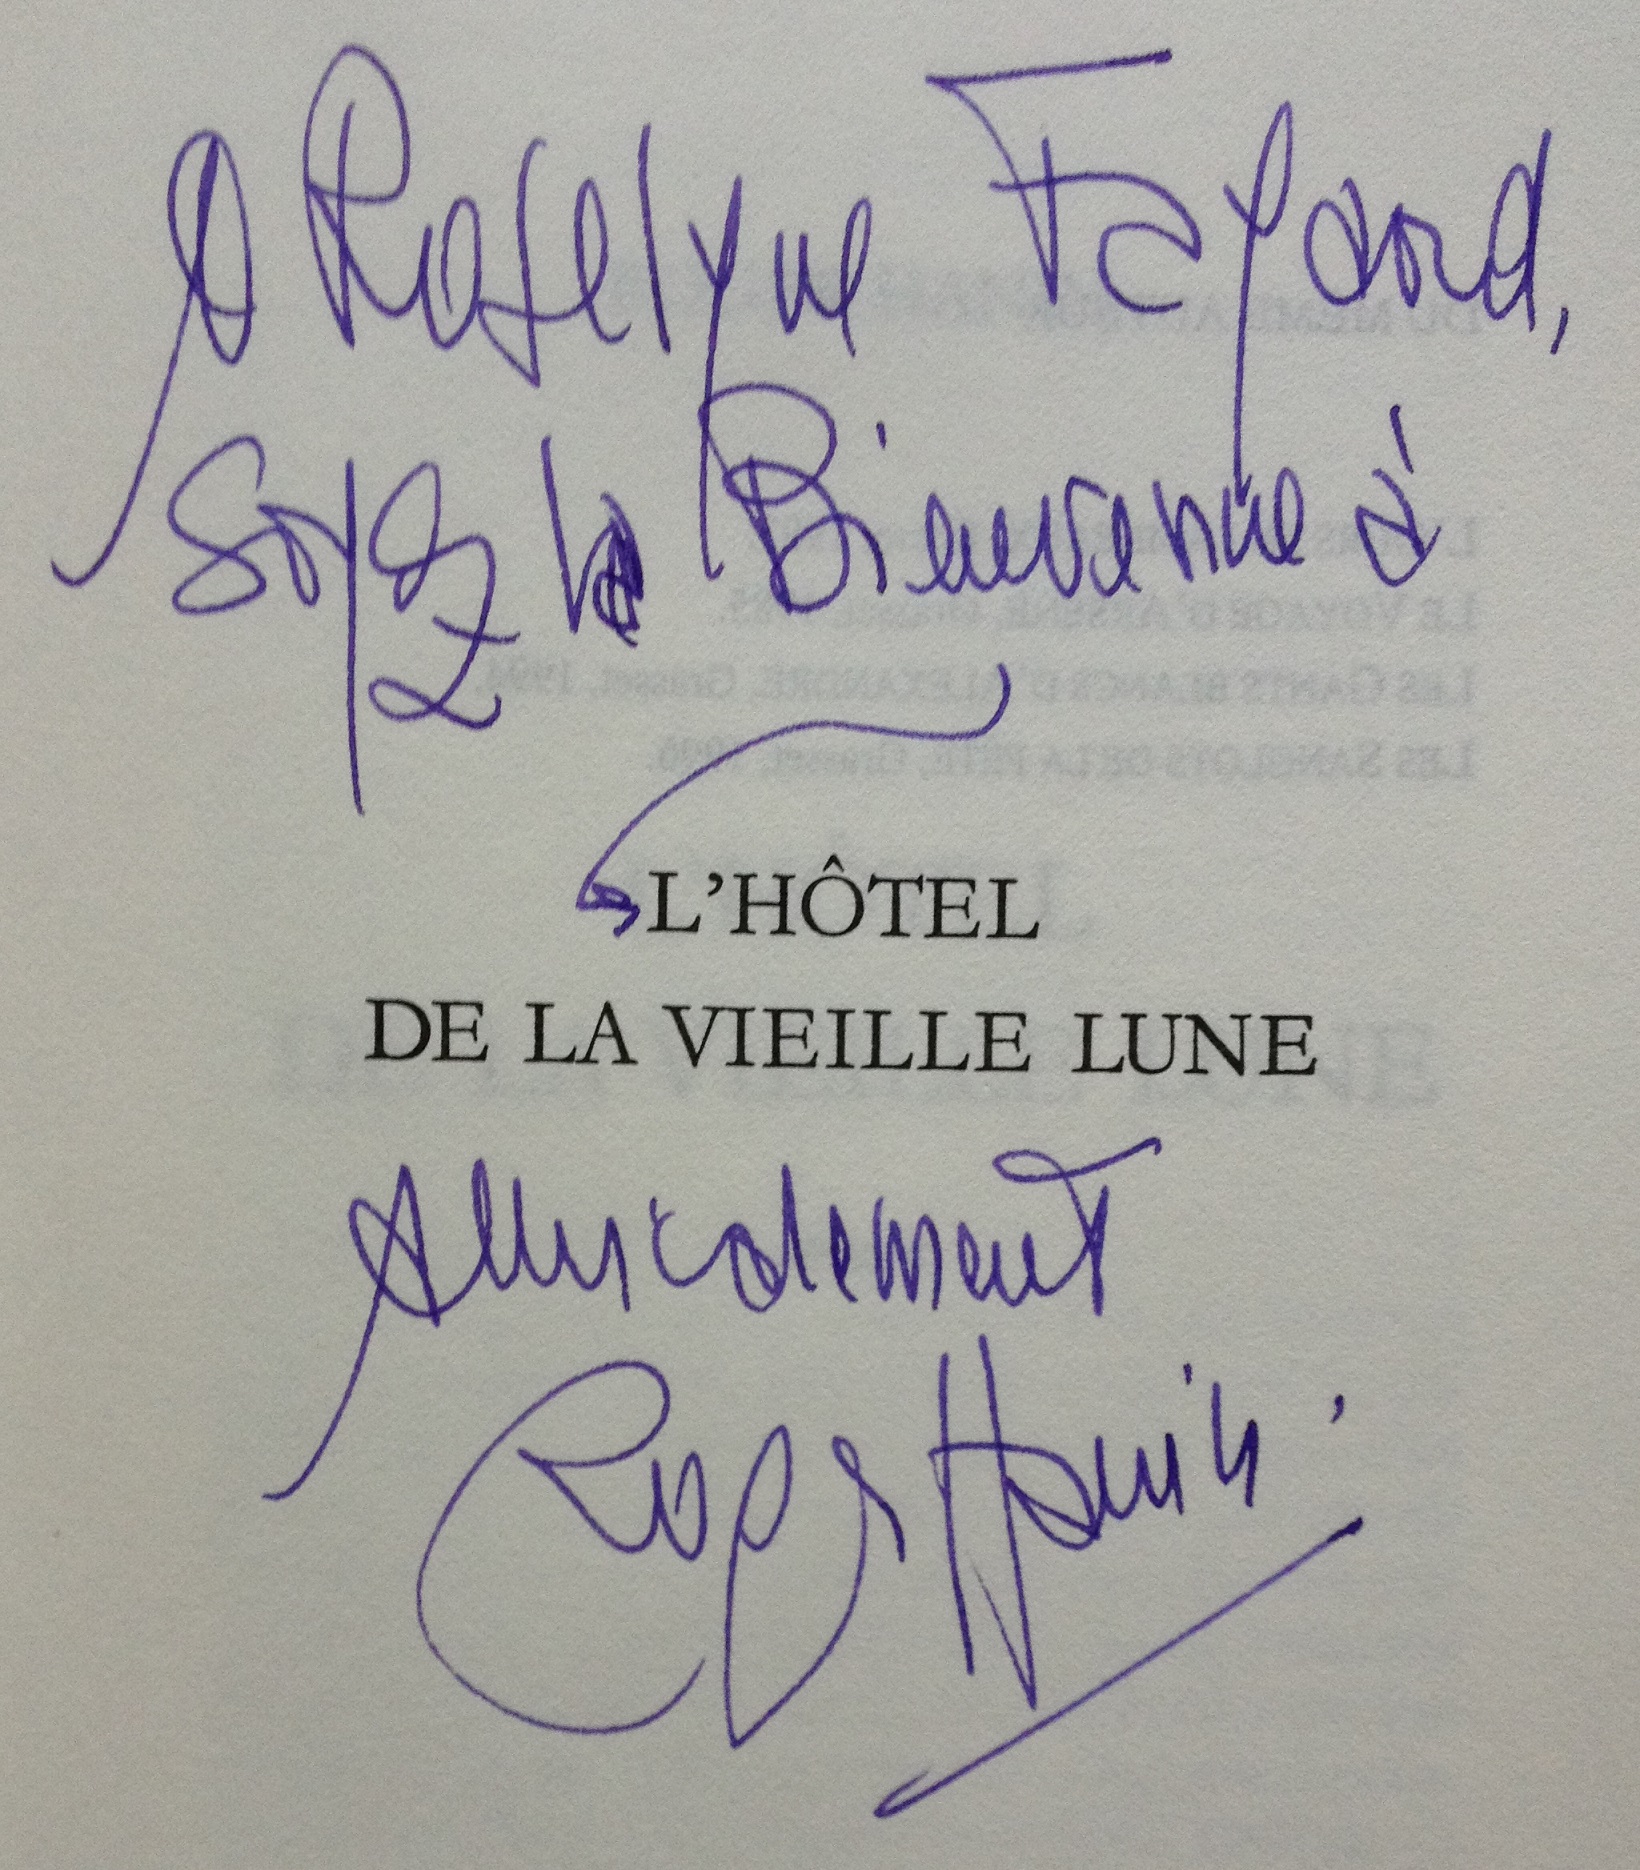 A Roselyne Fayard,
Soyez la Bienvenue à
L'HÔTEL
DE LA VIEILLE LUNE
Amicalement
Roger Hanin.